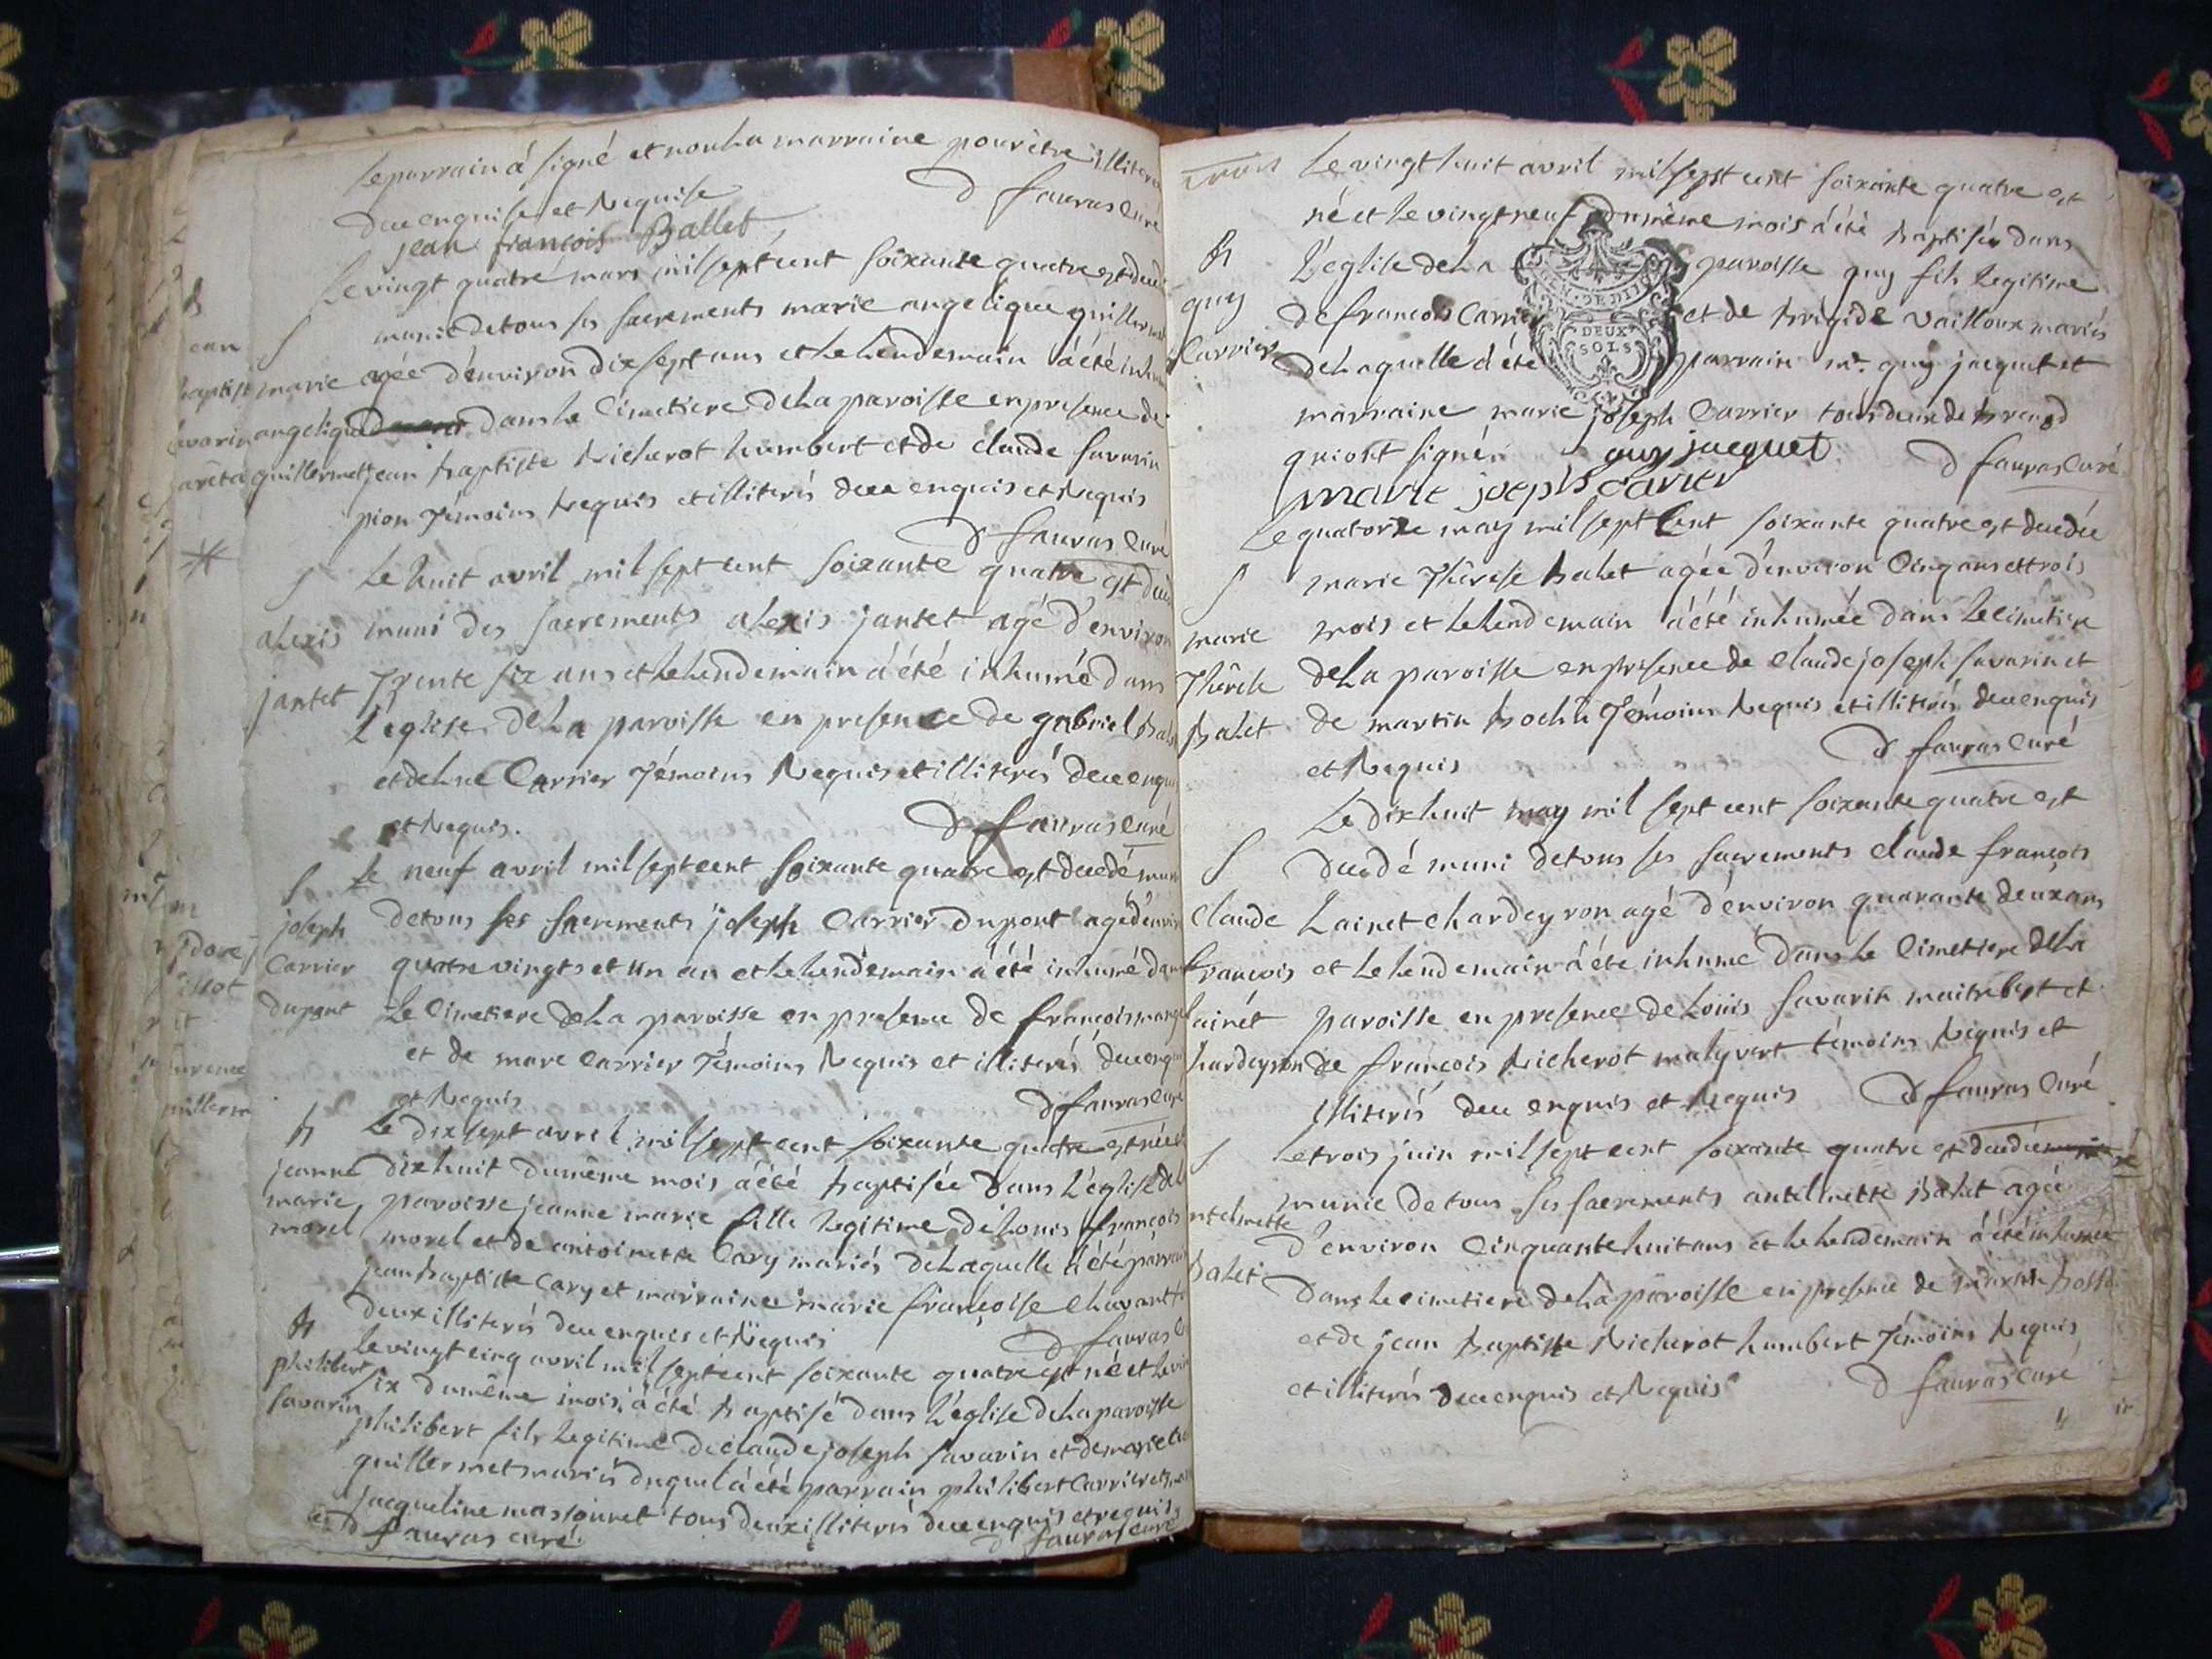 le parrain á signé et non la marraine pour être illiterée
duee enquise et Requise
D fauras curé
jean françois Ballet
Le vingt quatre mars mil sept cent soixante quatre est
munie de tous ses sacrements marie angelique guillermet
marie agée d'environ dix sept ans et le lendemain á été
angelique dans le cimetiere de la paroisse en presence de
guillermet jean baptiste Richerot humbert et de claude savarin
pion témoins Requis et illiterés duee enquis et Requis
D fauras curé
S Le huit avril mil sept cent soixante quatre est
alexis muni des sacrements alexis jantet agé d'environ
jantet trente six ans et le lendemain á été inhumé dans
l'eglise de la paroisse en presence de gabriel
et de Carrier témoins Requis et illiterés duee
et Requis.
D fauras curé
S Le neuf avril mil sept cent soixante quatre est decedé muni
joseph de tous ses sacrements joseph Carrier dupont agé d'environ
Carrier quatre vingts et un an et le lendemain á été inhumé dans
dupont le cimetiere de la paroisse en presence de françois
et de marc carrier témoins Requis et illiterés duee
et Requis
D fauras curé
B Le dix sept avril mil sept cent soixante quatre est née
jeanne dix huit du même mois á été baptisée dans l'eglise de la
marie paroisse jeanne marie fille legitime de louis françois
morel morel et de antoinette Cary mariés de laquelle á été parrain
jean baptiste Cary et marraine marie françoise
deux illiterés duee enquis et Requis
D fauras
B le vingt cinq avril mil sept cent soixante quatre est né et le
philibert six du même mois á été baptisé dans l'eglise de la paroisse
savarin philibert fils legitime de claude joseph savarin et de marie
guillermet mariés duquel á été parrain philibert Carrier et
jacqueline massonnet tous deux illiterés duee enquis et requis
D fauras curé
D fauras curé
Le vingt huit avril mil sept cent soixante quatre est
né et le vingt neuf du même mois á été baptisée dans
B l'eglise de la paroisse guy fils legitime
guy de francois Carrier et de brigide vailloux mariés
Carrier de laquelle á été parrain mr. guy jacquet et
DEUX
SOLS
marraine marie joseph Carrier tous deux de brenod
qui ont signé guy jacquet D fauras curé
marie joseph carrier
Le quatorze may mil sept cent soixante quatre est decedée
S marie thérese balet agée d'environ cinq ans et trois
marie mois et le lendemain á été inhumée dans le cimetiere
thérese de la paroisse en presence de claude joseph savarin et
balet de martin témoins Requis et illiterés duee enquis
et Requis
D fauras curé
Le dix huit may mil sept cent soixante quatre est
S decedé muni de tous ses sacrements claude françois
claude Lainet chardeyron agé d'environ quarante deux ans
francois et le lendemain á été inhumé dans le cimetiere de la
lainet paroisse en presence de louis savarin et
chardeyron de françois Richerot malyvert témoins Requis et
illiterés duee enquis et Requis D fauras curé
S Le trois juin mil sept cent soixante quatre est decedée
munie de tous ses sacrements antelmette balet agée
antelmette d'environ cinquante huit ans et le lendemain á été inhumée
balet dans le cimetiere de la paroisse en presence de
et de jean baptiste Richerot humbert témoins Requis
et illiterés duee enquis et Requis D fauras curé